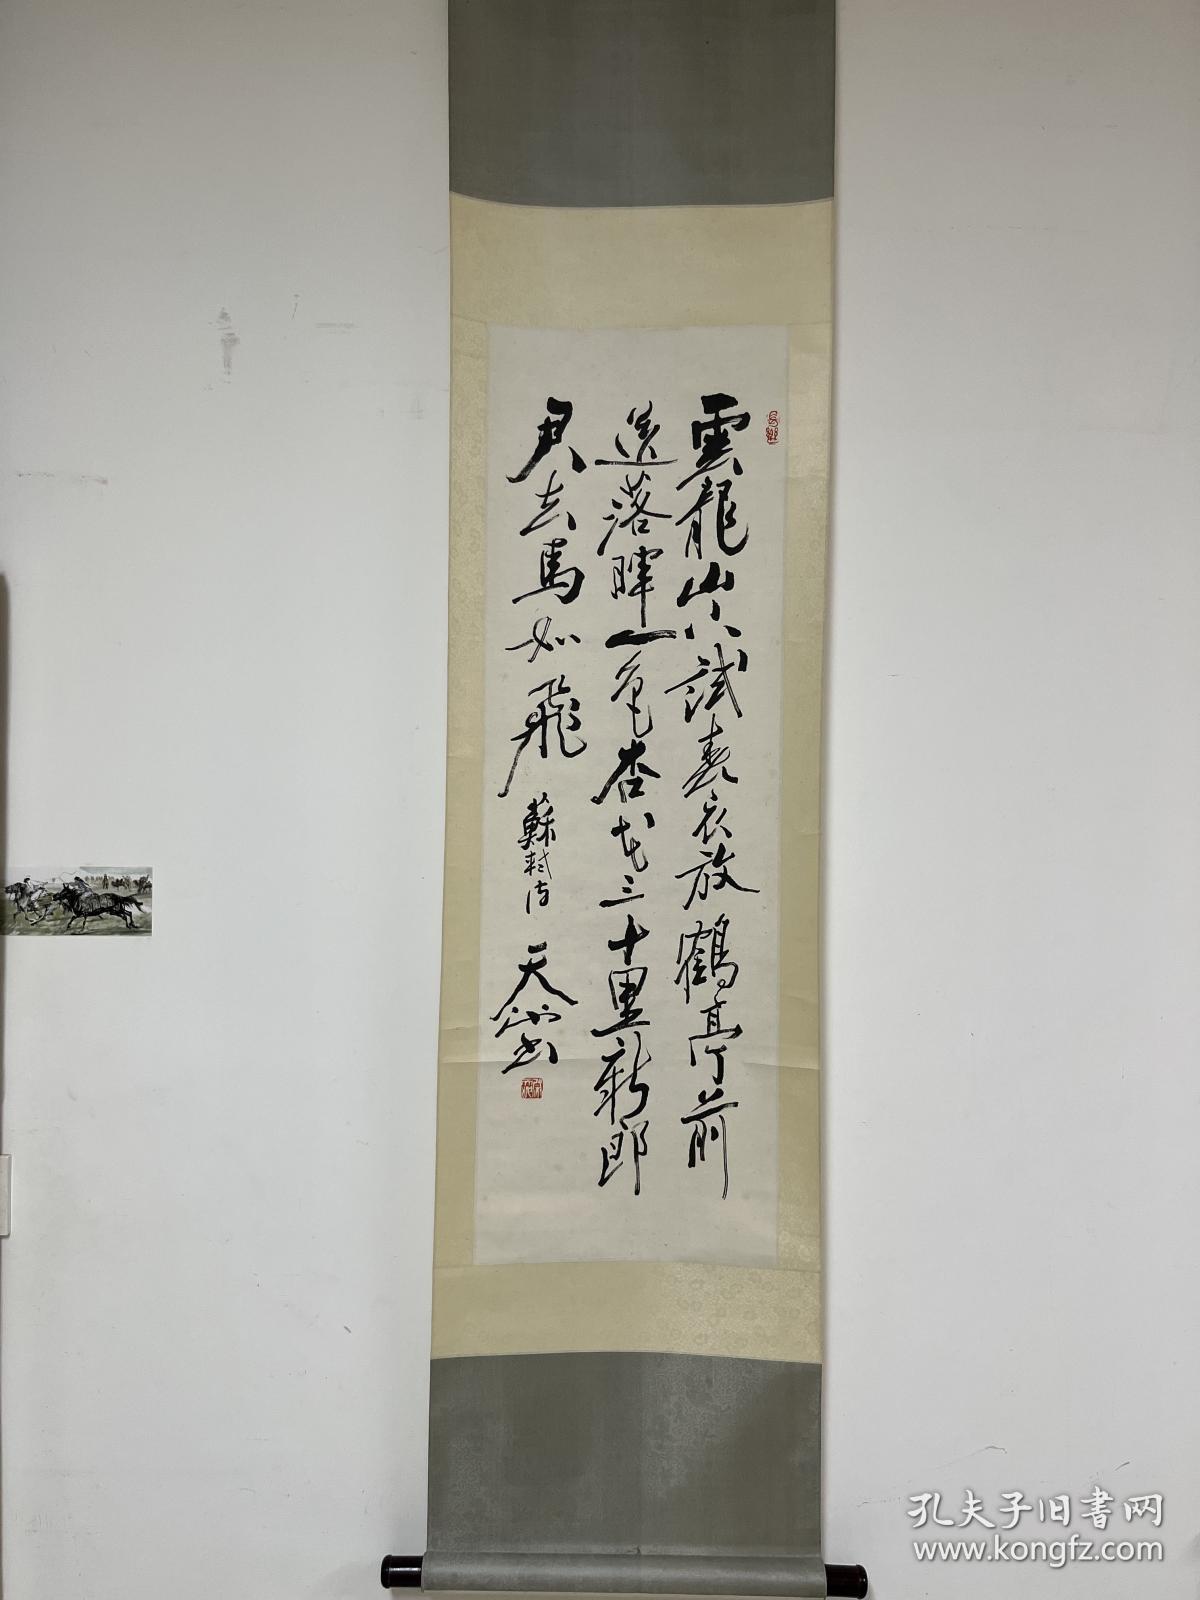 雲龍山下試春衣放鶴亭前
送落暉一色杏花三十里新郎
君去馬如飛
蘇軾诗
天
书
孔夫子旧书网
www.kongfz.com